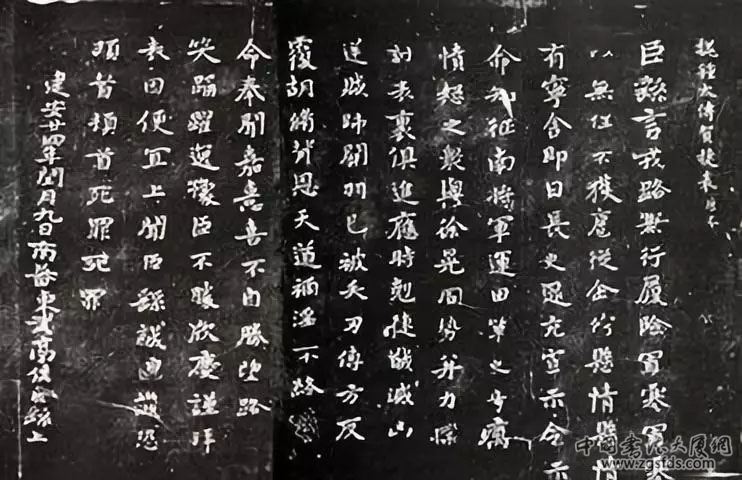 魏鍾太傅賀捷表
臣繇言戎路兼行履險冒寒冒寒
以無任不獲扈從企佇懸情懸情
有寧舍即日長史逯充宣示令示
命知征南將軍運田單之奇厲
憤怒之衆與徐晃同勢并力撲
討表裏俱進應時剋捷馘滅凶
逆賊帥關羽已被矢刃傅方反
覆胡脩背恩天道禍淫不終厥
命奉聞嘉憙喜不自勝望路
笑踊躍逸豫臣不勝欣慶謹拜
表因便宜上聞臣繇誠惶誠恐
頓首頓首死罪死罪
建安廿四年閏月九日南蕃東武亭侯臣繇上
中国书法大展網
www.zgsfds.com